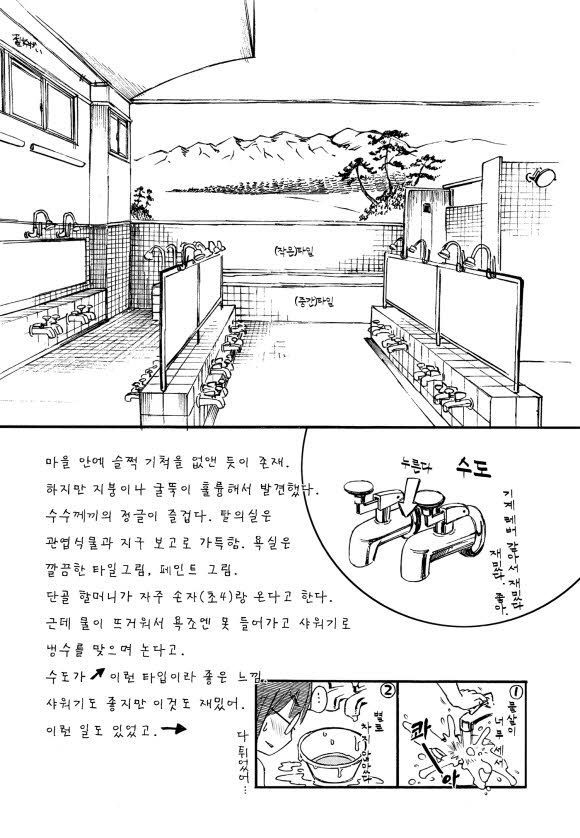 (작은)타일
(중간)타일
마을 안에 슬쩍 기척을 없앤 듯이 존재.
하지만 지붕이나 굴뚝이 훌륭해서 발견했다.
수수께끼의 정글이 즐겁다. 탈의실은
관엽식물과 지구 보고로 가득함. 욕실은
깔끔한 타일그림, 페인트 그림.
단골 할머니가 자주 손자(초4)랑 온다고 한다.
근데 물이 뜨거워서 욕조엔 못 들어가고 샤워기로
냉수를 맞으며 논다고.
수도가 ↗ 이런 타입이라 좋은 느낌.
샤워기도 좋지만 이것도 재밌어.
이런 일도 있었고. →
누른다
수도
기계 레버 같아서 재밌다
재밌다. 좋아.
①
물살이
너무 세서
콰
아
②
…
별로
차지 않았다
다 튀었어…